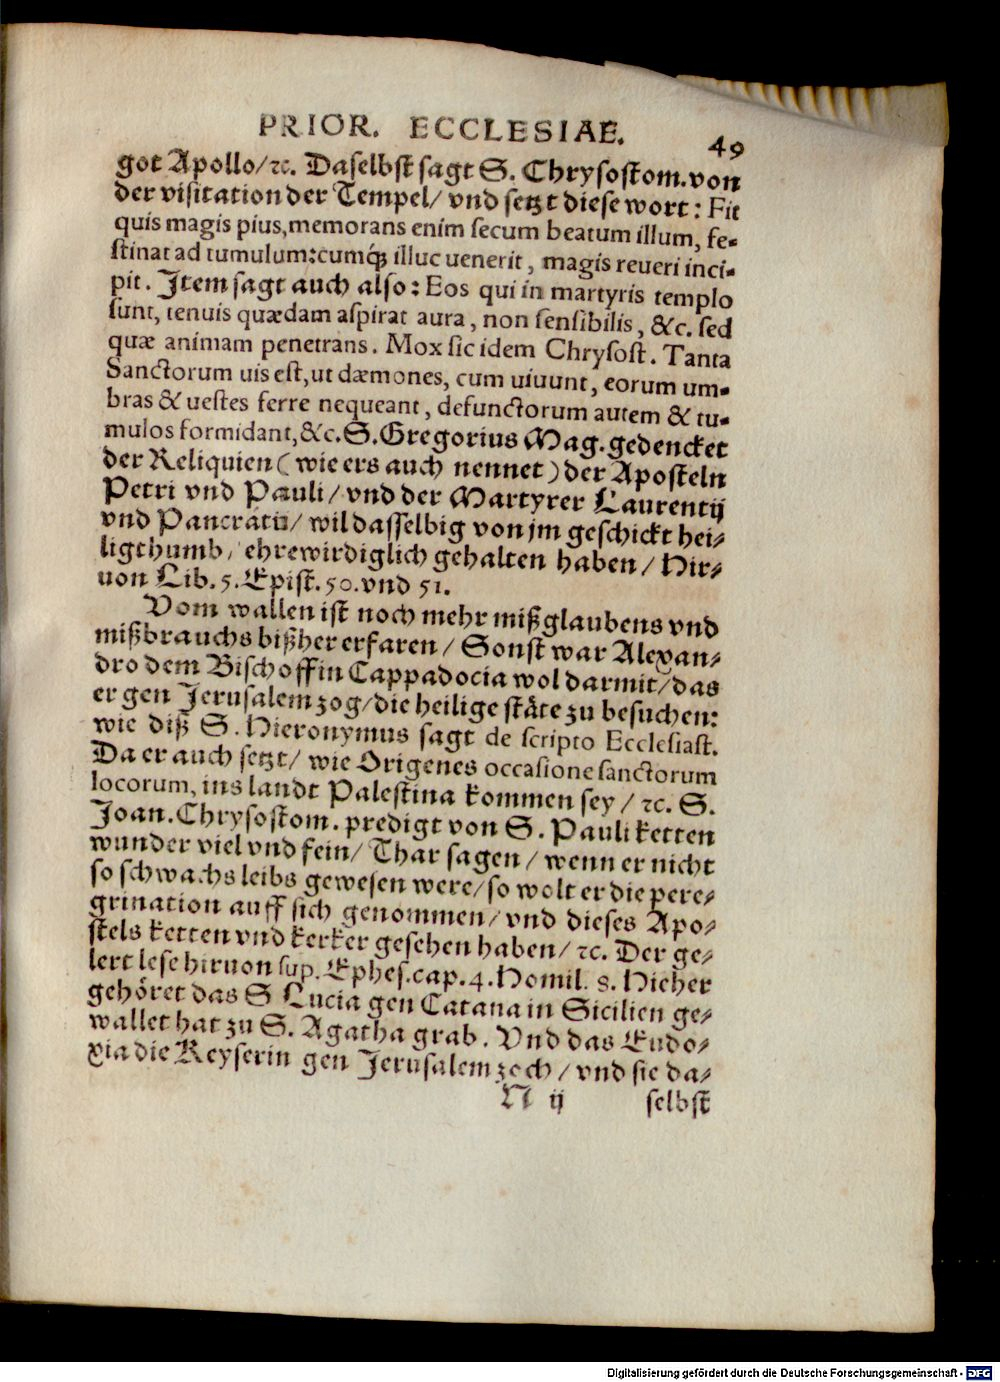 PRIOR. ECCLESIAE. 49
got Apollo/ ꝛc. Daselbst sagt S. Chrysostom. von
der visitation der Tempel/ vnd setzt diese wort: Fit
quis magis pius, memorans enim secum beatum illum, fe-
stinat ad tumulum: cumq́ꝫ illuc uenerit, magis reueri inci-
pit. Item sagt auch also: Eos qui in martyris templo
sunt, tenuis quædam aspirat aura, non sensibilis, &c. sed
quæ animam penetrans. Mox sic idem Chrysost. Tanta
Sanctorum uis est, ut dæmones, cum uiuunt, eorum um-
bras & uestes ferre nequeant, defunctorum autem & tu-
mulos formidant, &c. S. Gregorius Mag. gedencket
der Reliquien (wie ers auch nennet) der Aposteln
Petri vnd Pauli/ vnd der Martyrer Laurentij
vnd Pancratij/ wil dasselbig von jm geschickt hei-
ligthumb/ ehrewirdiglich gehalten haben/ Hir-
uon Lib. 5. Epist. 50. vnd 51.
Vom wallen ist noch mehr mißglaubens vnd
mißbrauchs bißher erfaren/ Sonst war Alexan-
dro dem Bischoff in Cappadocia wol darmit/ das
er gen Jerusalem zog/ die heilige stäte zu besuchen:
wie diß S. Hieronymus sagt de scripto Ecclesiast.
Da er auch setzt/ wie Origenes occasione sanctorum
locorum, ins landt Palestina kommen sey/ ꝛc. S.
Joan. Chrysostom. predigt von S. Pauli ketten
wunder viel vnd fein/ Thar sagen/ wenn er nicht
so schwachs leibs gewesen were/ so wolt er die pere-
grination auff sich genommen/ vnd dieses Apo-
stels ketten vnd kerker gesehen haben/ ꝛc. Der ge-
lert lese hiruon sup. Ephes. cap. 4. Homil. 8. Hieher
gehöret das S Lucia gen Catana in Sicilien ge-
wallet hat zu S. Agatha grab. Vnd das Eudo-
xia die Keyserin gen Jerusalem zoch/ vnd sie da-
N ij selbst
Digitalisierung gefördert durch die Deutsche Forschungsgemeinschaft - DFG